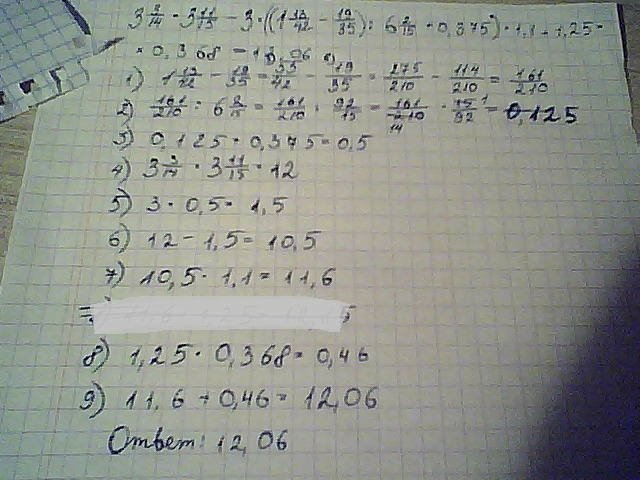 3 3/14 · 3 11/15 − 3 · ((1 13/42 − 19/35) : 6 2/15 + 0,375) · 1,1 + 1,25 ·
· 0,368 = 12,06
1) 1 13/42 − 19/35 = 55/42 − 19/35 = 275/210 − 114/210 = 161/210
2) 161/210 : 6 2/15 = 161/210 : 92/15 = 161/210 · 15/92 = 0,125
3) 0,125 + 0,375 = 0,5
4) 3 3/14 · 3 11/15 = 12
5) 3 · 0,5 = 1,5
6) 12 − 1,5 = 10,5
7) 10,5 · 1,1 = 11,6
8) 1,25 · 0,368 = 0,46
9) 11,6 + 0,46 = 12,06
Ответ: 12,06